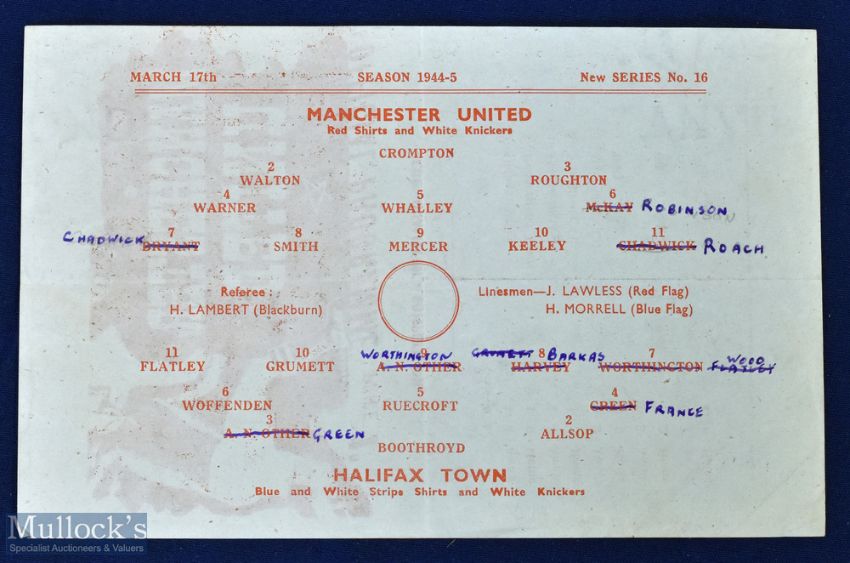 MARCH 17th SEASON 1944-5 New SERIES No. 16
MANCHESTER UNITED
Red Shirts and White Knickers
CROMPTON
2 3
WALTON ROUGHTON
4 5 6
WARNER WHALLEY McKAY ROBINSON
7 8 9 10 11
CHADWICK BRYANT SMITH MERCER KEELEY CHADWICK ROACH
Referee : Linesmen—J. LAWLESS (Red Flag)
H. LAMBERT (Blackburn) H. MORRELL (Blue Flag)
11 10 WORTHINGTON 9 GRUMETT 8 BARKAS 7 WOOD
FLATLEY GRUMETT A. N. OTHER HARVEY WORTHINGTON FLATLEY
6 5 4
WOFFENDEN RUECROFT GREEN FRANCE
3 2
A. N. OTHER GREEN ALLSOP
BOOTHROYD
HALIFAX TOWN
Blue and White Stripe Shirts and White Knickers
Mullock's
Specialist Auctioneers & Valuers